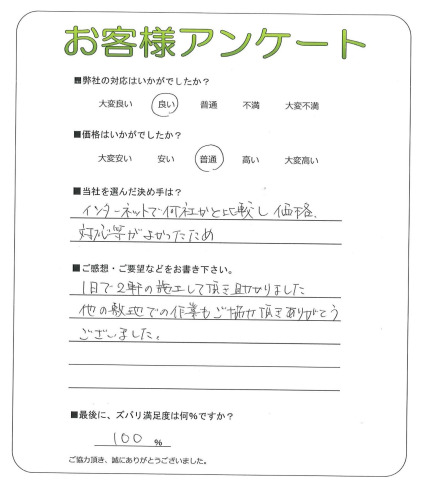 お客様アンケート
■弊社の対応はいかがでしたか？
大変良い 良い 普通 不満 大変不満
■価格はいかがでしたか？
大変安い 安い 普通 高い 大変高い
■当社を選んだ決め手は？
インターネットで何社かと比較し価格、
対応等がよかったため
■ご感想・ご要望などをお書き下さい。
1日で2軒の施工して頂き助かりました
他の敷地での作業もご協力頂きありがとう
ございました。
■最後に、ズバリ満足度は何％ですか？
100 %
ご協力頂き、誠にありがとうございました。